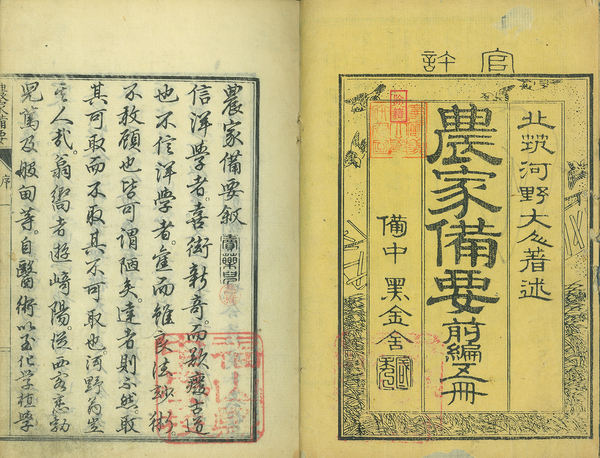 官許
北筑河野大著述
農家備要前編五冊
備中 黒金舎
農家備要叙
信洋學者。喜衒新奇。而欲廢古道
也不信洋學者。雖良法妙術
不敢顧也皆可謂陋矣。達者則不然。取
其可取而不取其不可取也。河野翁豈
其人哉。翁嚮者遊崎陽。從西客悉勃
児篤及般甸等。自醫術以至化学植學
農家備要 序